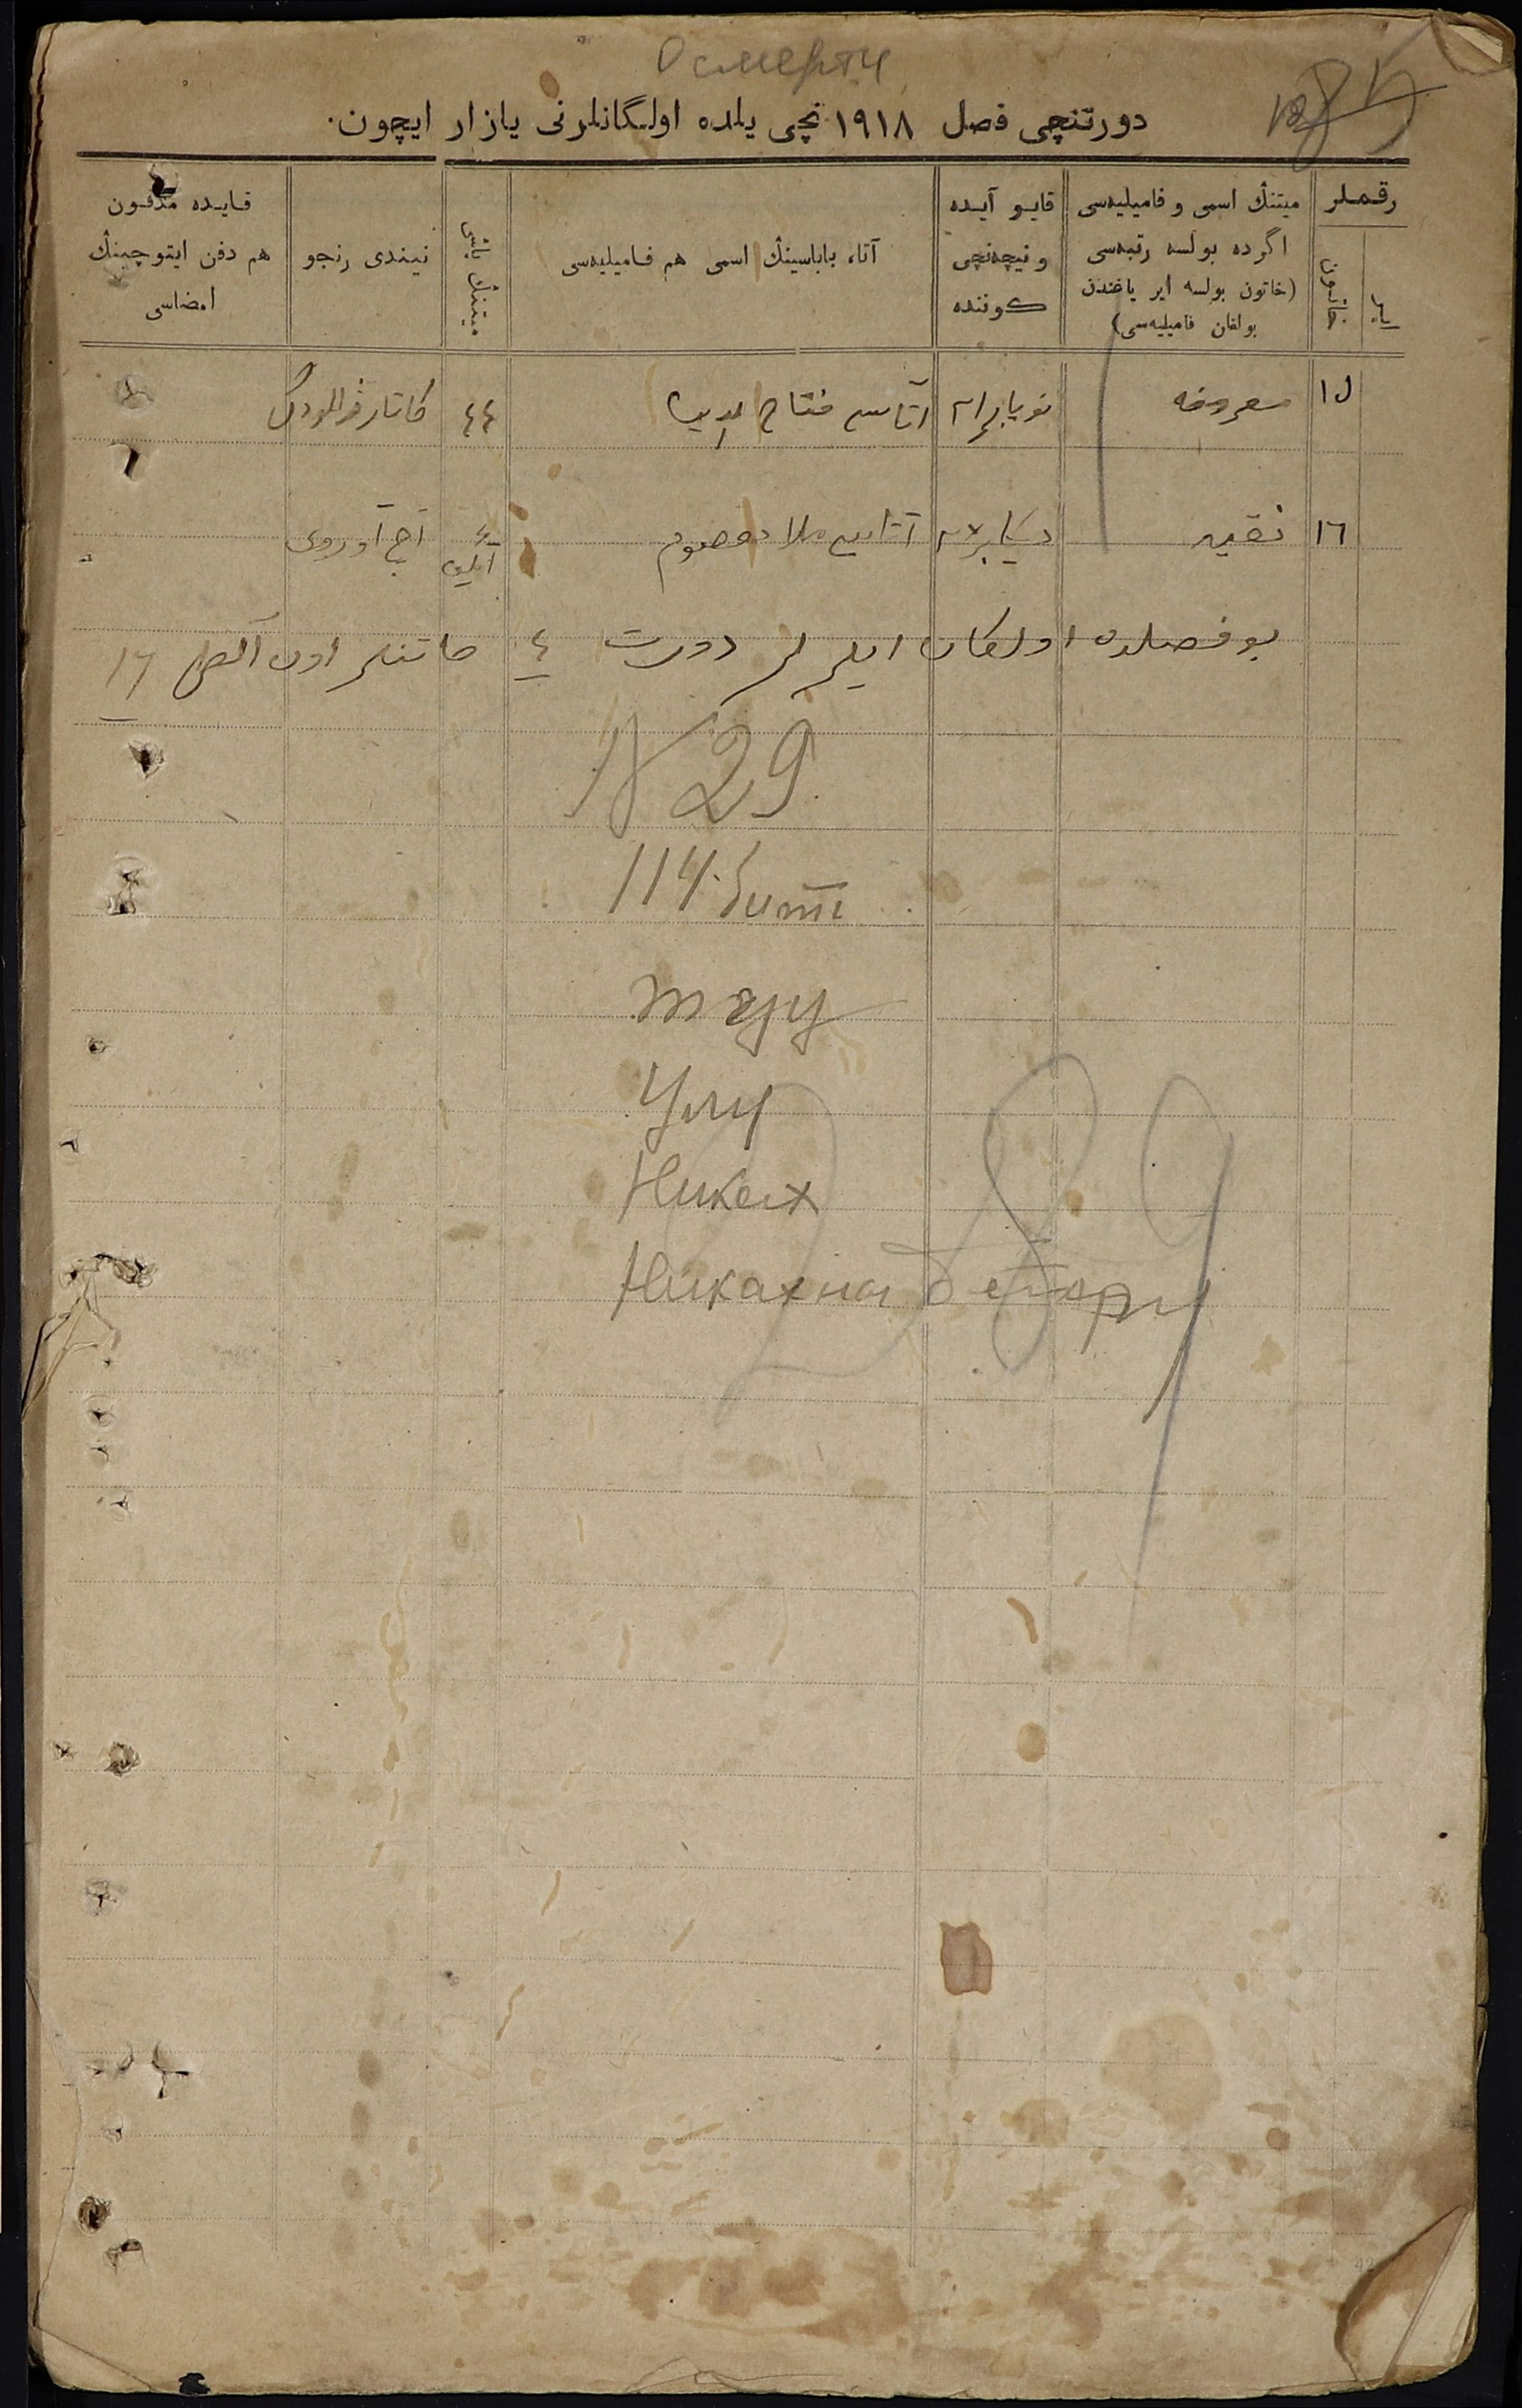 О смерти
دورتنچی فصل ١٩١٨ نچی یلده اولگانلرنی یازار ایچون.
رقملر
میتنڭ اسمی و فامیلیه‌سی
اگرده بولسه رتبه‌سی
(خاتون بولسه ایر یاغندن
بولغان فامیلیه‌سی)
قایو آیده
و نیچه‌نچی
کوننده
آتا، باباسینڭ اسمی هم فامیلیه‌سی
میتنڭ یاشی
نیندی رنجو
قایده مدفون
هم دفن ایتوچینڭ
امضاسی
١٥ معروفه آتاسی فتاح الدین ٤٤
١٦ آتاسی ملا معصوم آچ آوروی
بو فصلده اولکان ایرلر دورت ٤ خاتنلر اون آلطی ١٦
N 29
114 бит
тууу
Улу
Никах
Никахнаı бетəре
289